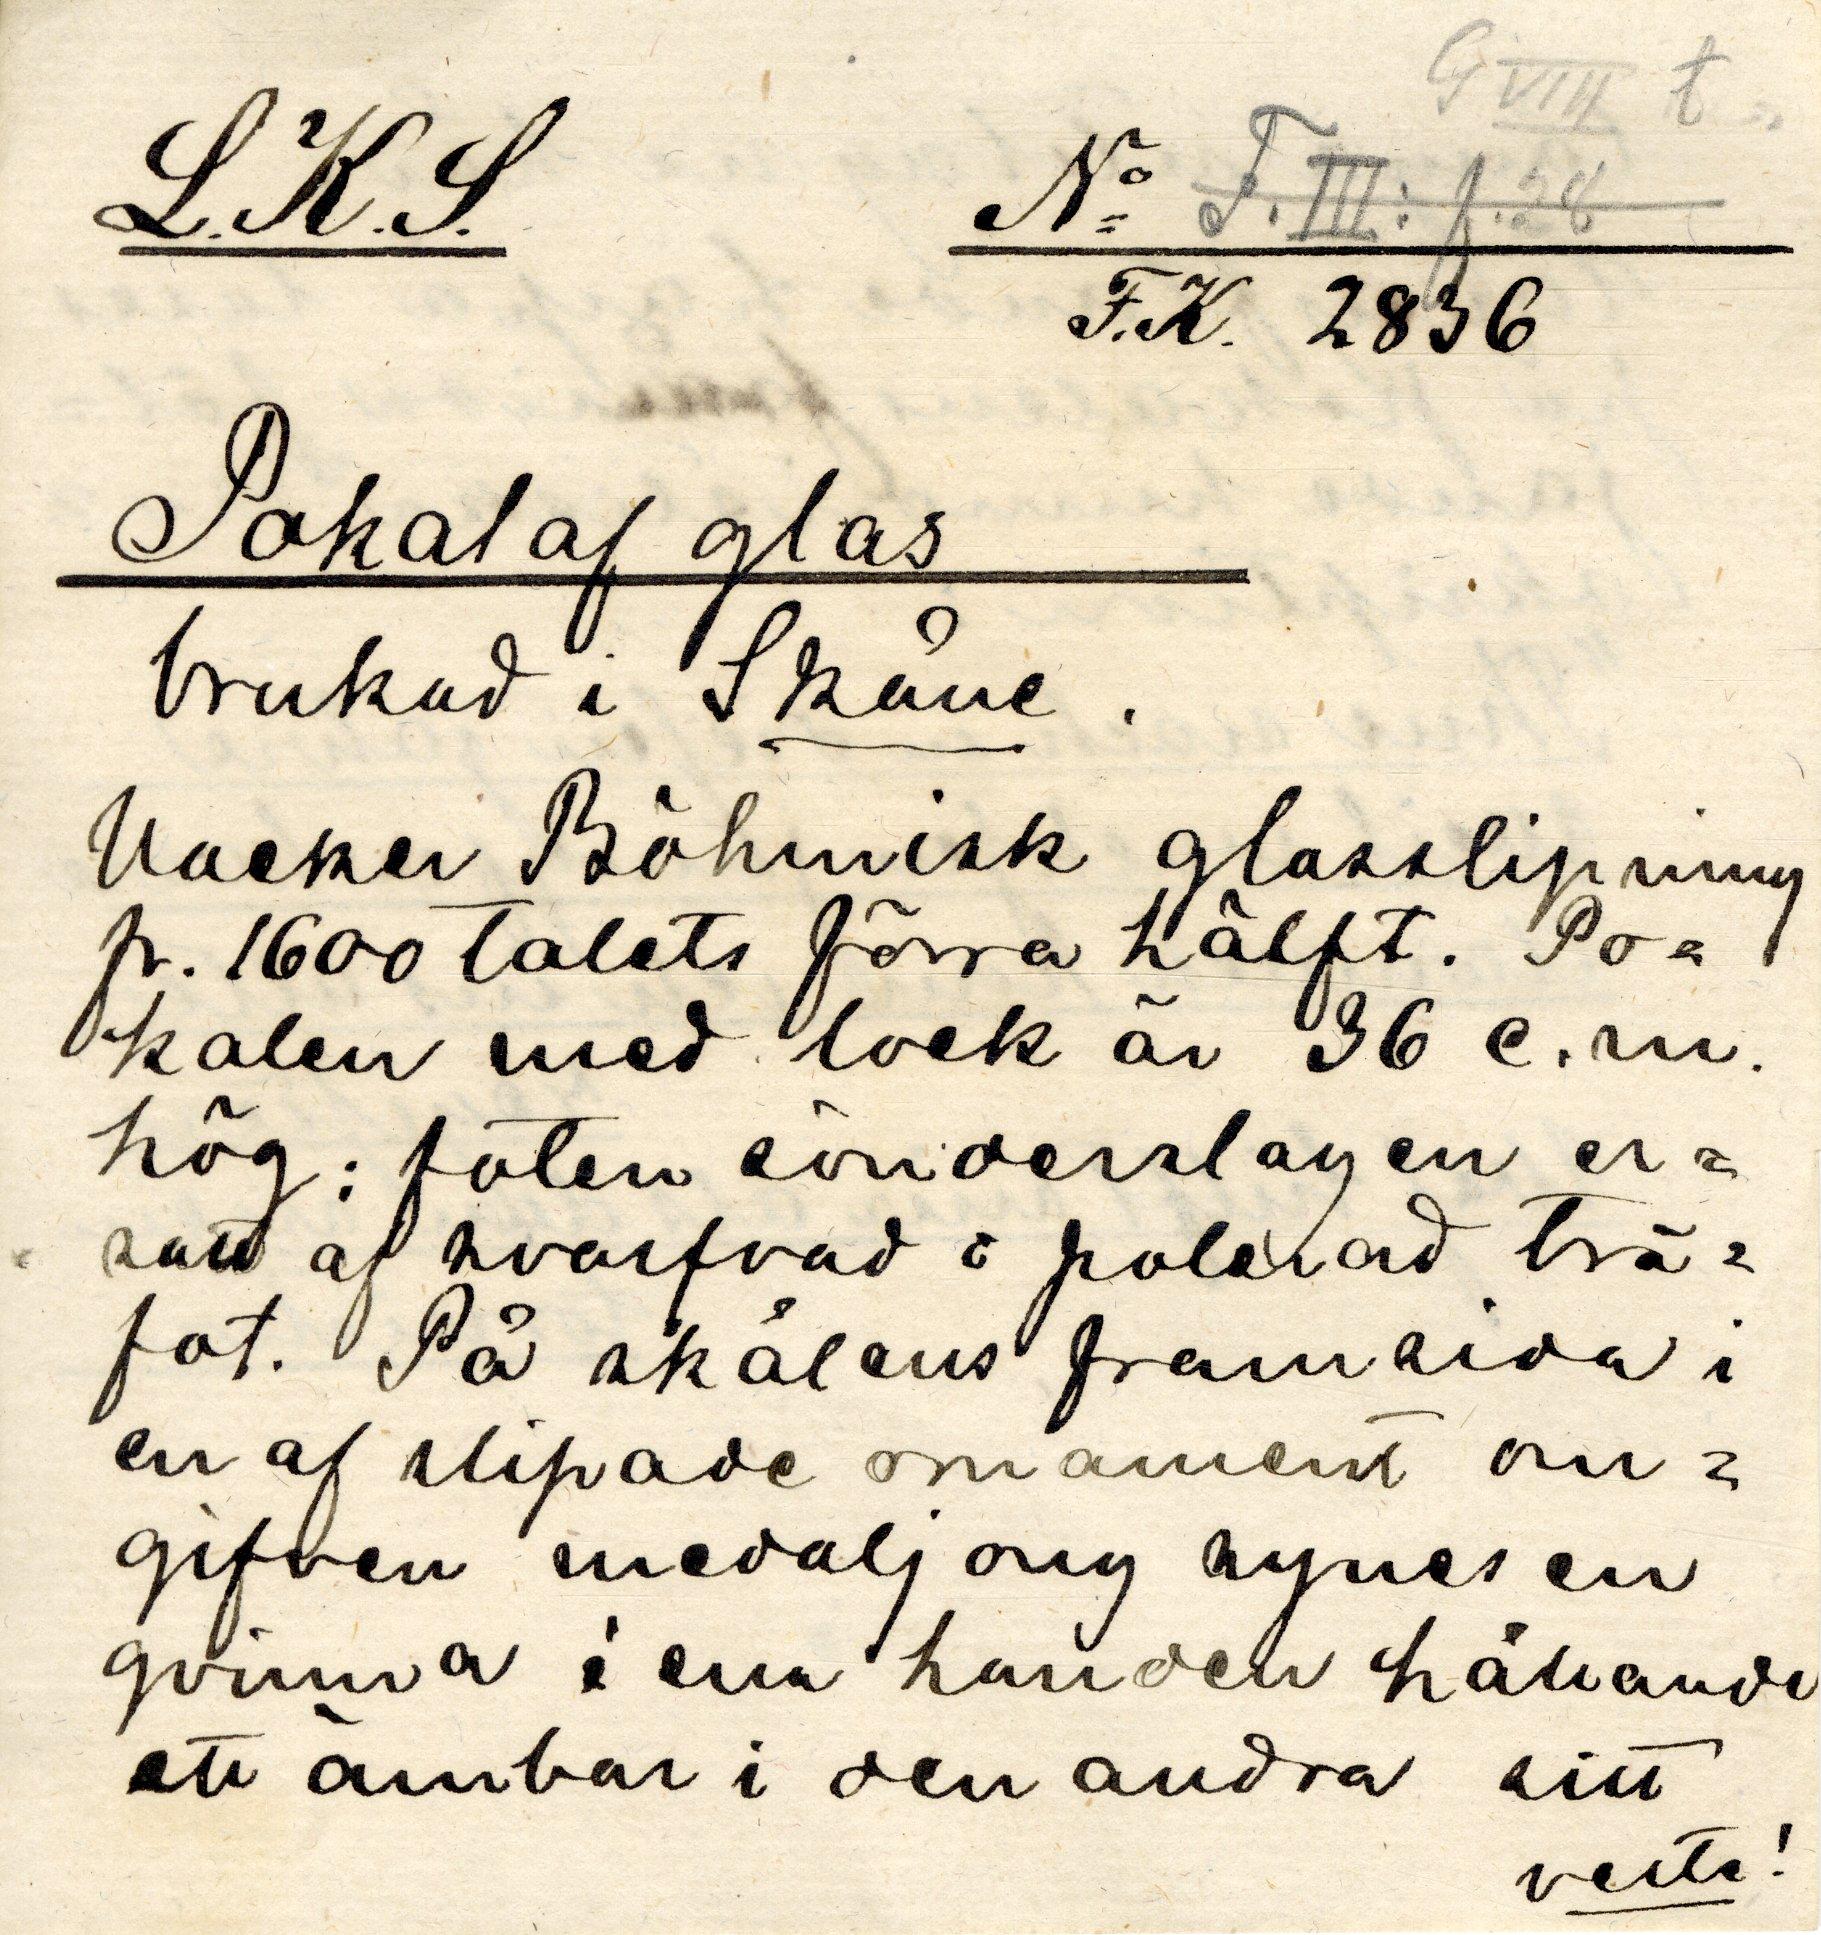 G VIII t.
L.K.S. No T.III: f.28
F.K. 2836
Pokal af glas
brukad i Skåne.
Vacker Böhmisk glasslipning
fr. 1600 talets förra hälft. Po=
kalen med lock är 36 c.m.
hög; foten sönderslagen er=
satt af svarfvad o polerad trä=
fot. På skålens framsida i
en af slipade ornament om=
gifven medaljong synes en
qvinna i ena handen hållande
ett ämbar i den andra sitt
verte!